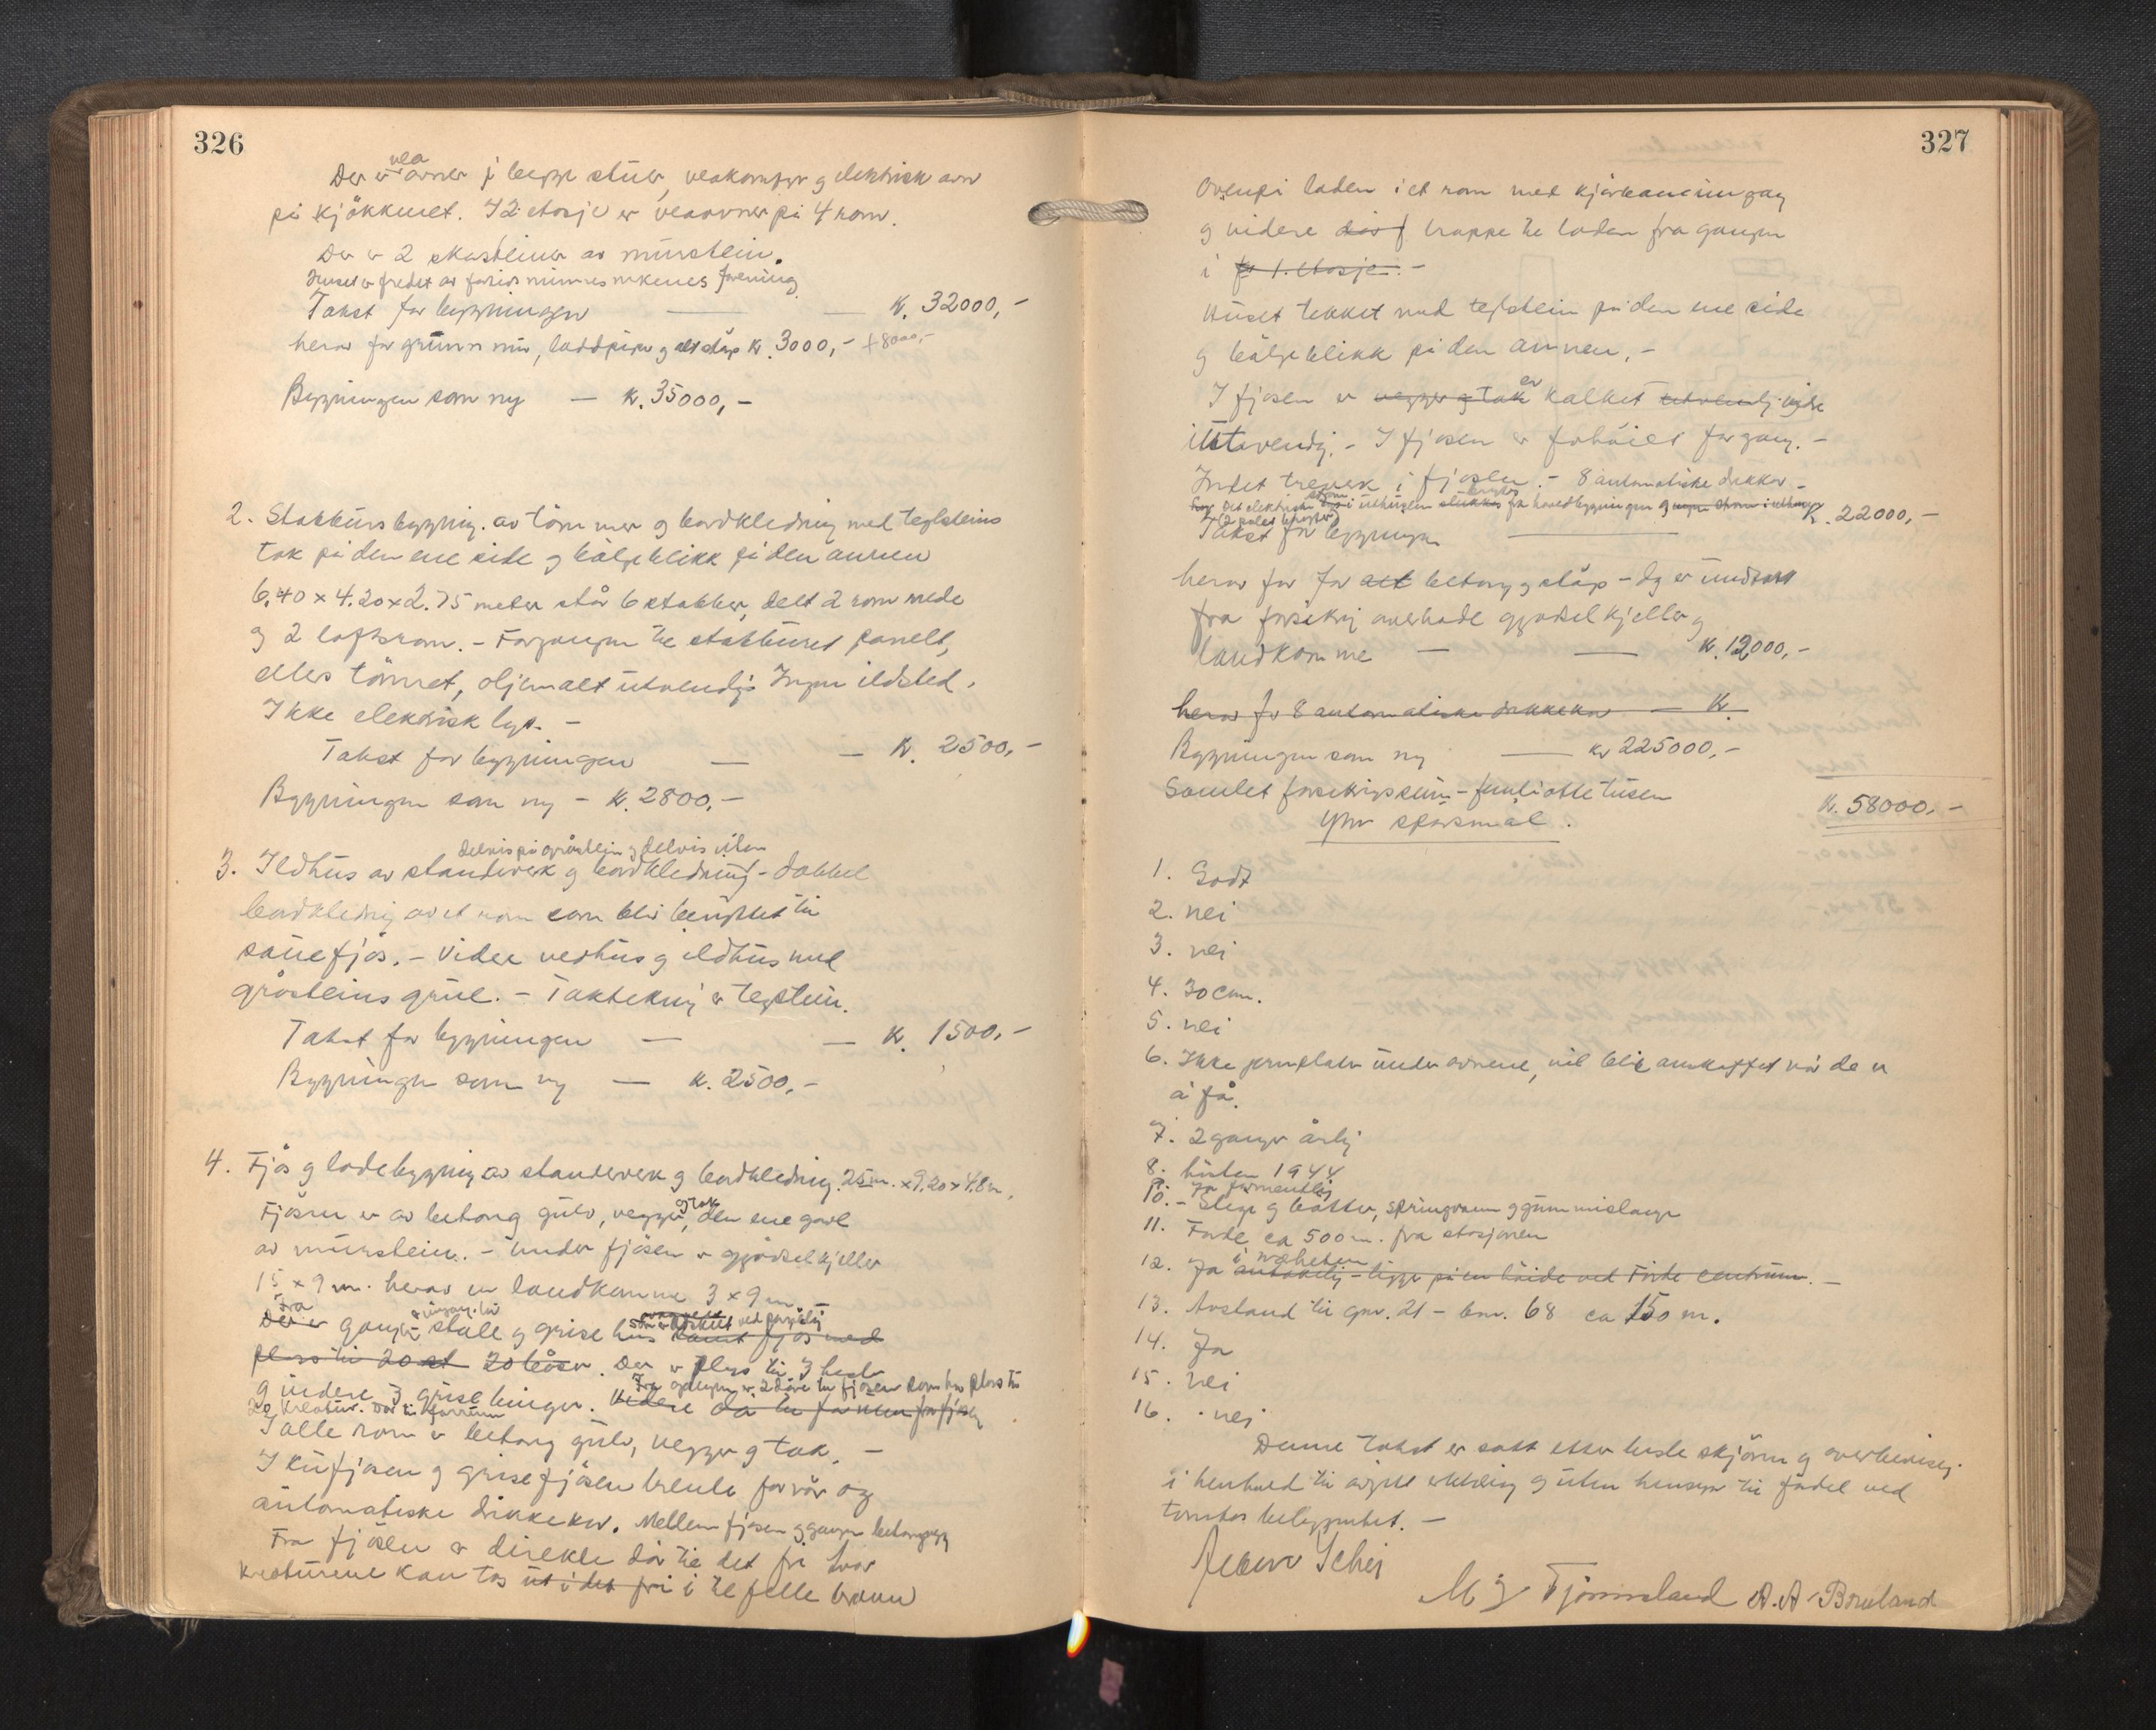 326
Der er vedovner i begge stuer, vedkomfyr og elektrisk ovn
på kjökkenet. I 2 etasje er vedovner på 4 rom.
Der er 2 skorsteiner av mürstein.
Huset er fredet av fortidsminnesmerkenes forening
Takst for bygningen — — K. 32000,-
herav for grünnmür, og K. 3000,- +8000,-
Bygningen som ny — K. 35000,-
2. Stabbürsbygning av tömmer og bordkledning med teglsteins
tak på den ene side og bölgeblikk på den annen
6.40 x 4.20 x 2.75 meter står 6 stabber, delt 2 rom nede
og 2 loftsrom. - Forgangen til stabbüret panelt,
ellers tömret, oljemalt ütvendig. Ingen ildsted.
Ikke elektrisk lys. -
Takst for bygningen — — K. 2500,-
Bygningen som ny - K. 2800,-
delvis på gråstein og delvis üten
3. Ildhüs av standverk og bordkledning - dobbel
bordkledning av et rom som blir benyttet til
sauefjös. - Videre vedhüs og ildhüs med
gråsteins grüe. - Taktekning er teglstein.
Takst for bygningen — — K. 1500,-
Bygningen som ny — K. 2500,-
4. Fjös og ladebygning av standverk og bordkledning. 25 m. x 9.20 x 4.8 m.
Fjösen er av betong gülv, vegger og tak, den ene gavl
av mürstein. - Under fjösen er gjödselkjeller
15 x 9 m. herav en landkumme 3 x 9 m. -
Fra
Der er gangen inngang til stall og grisehus som er adskilt ved samt fjös med
plass til 20 st 20 båser. Der er plass til 3 hester
og videre 3 grisebinger. Fra gangen er 2 döre til fjösen som har plass til
20 kreatur. Dör til fôrrüm Videre dör til fôrrüm fra fjösen
I alle rom er betong gülv, vegger og tak. -
I küfjösen og grisefjösen brente forrör og
automatiske drikkekar. Mellem fjösen og gangen betongvegg
Fra fjösen er direkte dör til det fri hvor
kreatürene kan tas üt i det fri i tilfelle brann
327
Ovenpå laden i et rom med kjörbaneinngang
og videre dör f trappe til laden fra gangen
i fr 1. etasje. -
Huset tekket med teglstein på den ene side
og bölgeblikk på den annen. -
I fjösen er vegger og tak er kalket utvendig
ütvendig. - I fjösen er forhöiet forgang. -
Intet treverk i fjösen. - 8 automatiske drikkekar -
Det elektriske ström i üthüsen stükkes fra hovedbygningen og ingen ström i üthüset
Takst for bygningen — K. 22000,-
herav for for alt betong og stöp - og er ündtatt
fra forsikring overbode gjödselkjeller og
landkumme — — K. 12000,-
herav for 8 automatiske drikkekar — K.
Bygningen som ny — kr 225000,-
Samlet forsikringssüm - femtiotte tusen K. 58000.-
Ytre spörsmål.
1. Godt
2. nei
3. nei
4. 30 cm.
5. nei
6. Ikke jernplater ünder ovnene, vil bli anskaffet når de er
å få.
7. 2 ganger årlig
8. hösten 1944
9. Ja formentlig
10. - Stige og bötter, springvann og gummislange
11. Förde ca 500 m. fra stasjonen
12. Ja i næheten antakelig - ligger på en höide ved Förde centrum. -
13. Avstand til gnr. 21 - bnr. 68 ca 150 m.
14. Ja
15. nei
16. nei
Denne takst er satt etter beste skjönn og overbevisning
i henhold til avgitt erklæring og üten hensyn til fordel ved
tomtens beliggenhet. -
Schei
M J Tjönneland A. A. Bruland